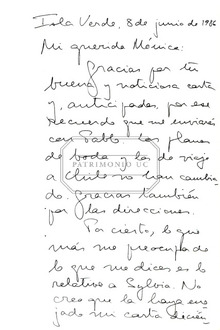 Isla Verde, 8 de junio de 1986
Mi querida Mónica:
Gracias por tu
buena y noticiosa carta
y, anticipadas, por ese
recuerdo que me enviarás
con Pablo. Los planes
de boda y los de viaje
a Chile no han cambia-
do. Gracias también
por las direcciones.
PATRIMONIO UC
Por cierto, lo que
más me preocupa de
lo que me dices es lo
relativo a Sylvia. No
creo que la haya eno-
jado mi carta dicién